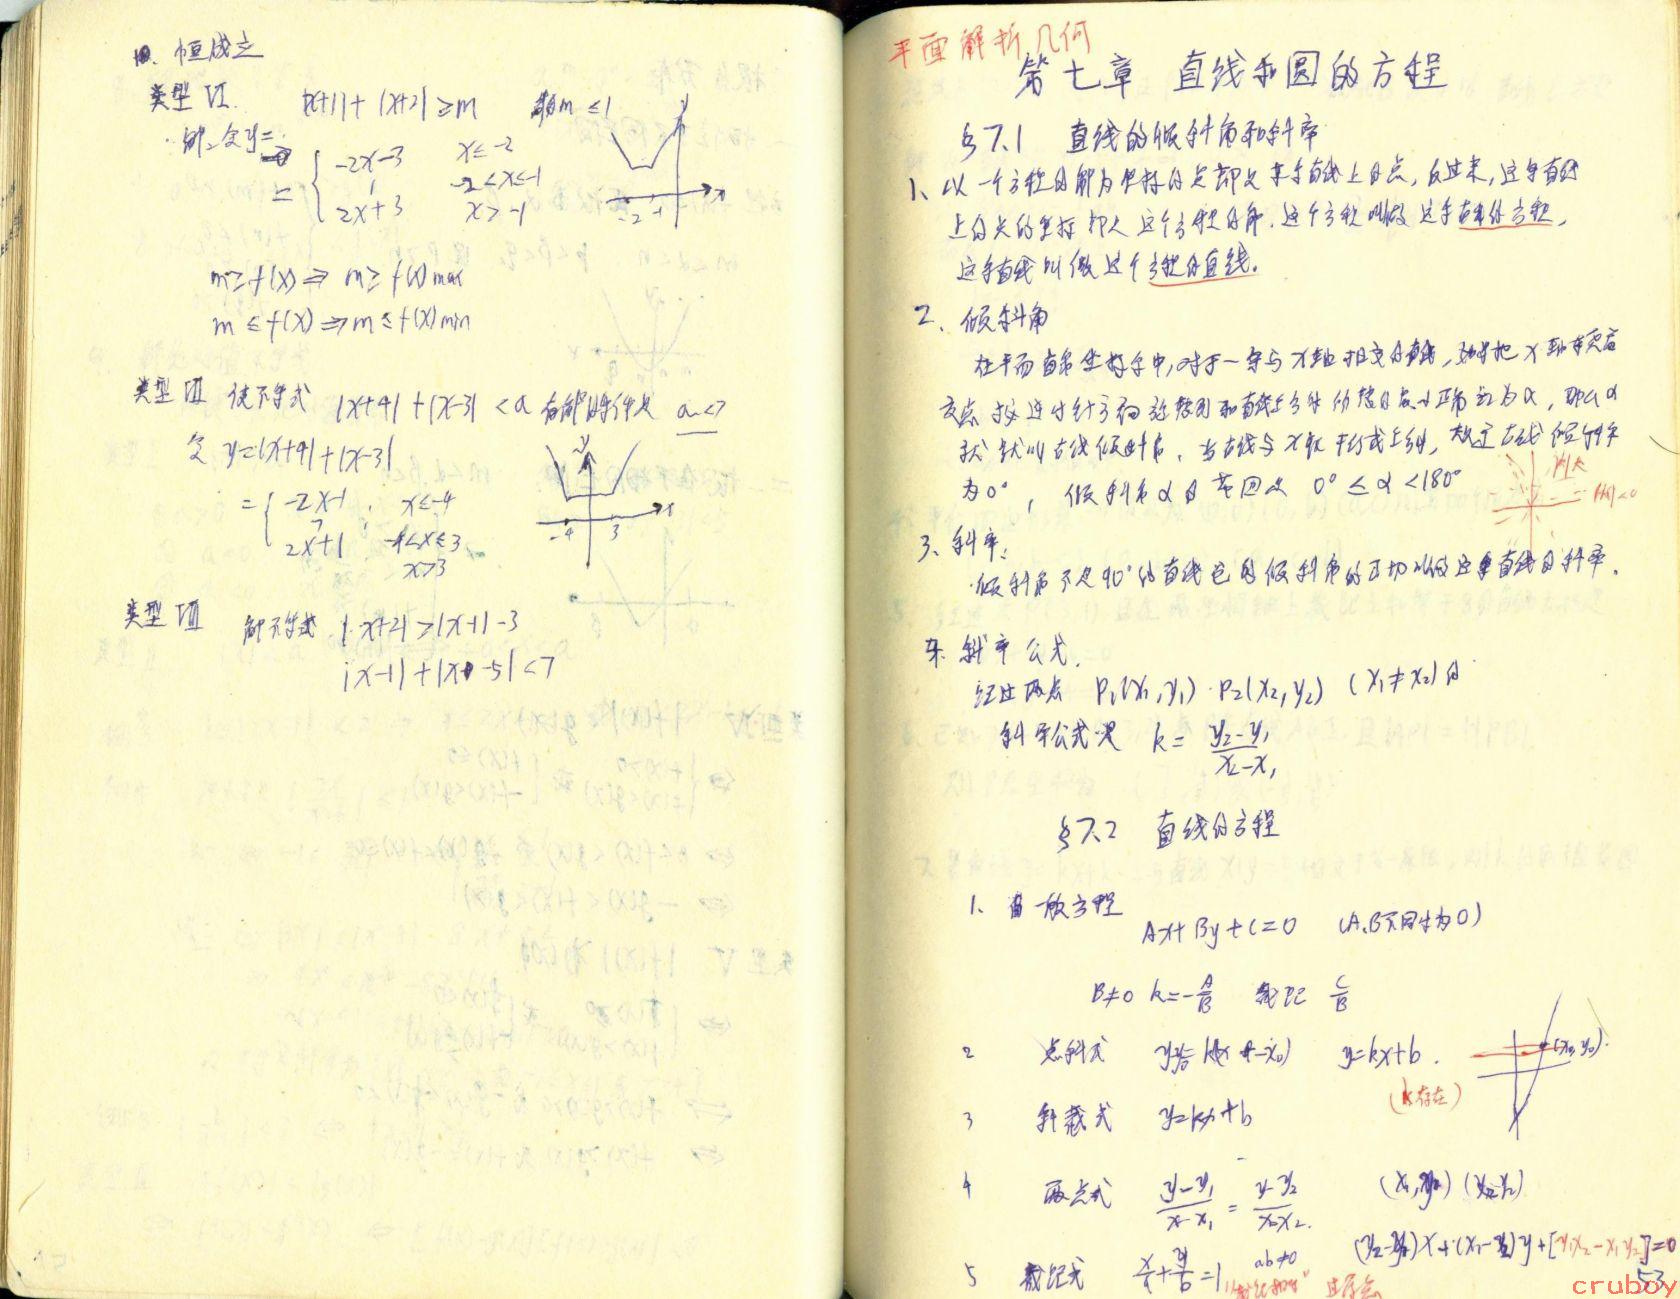 四、恒成立
类型 VI. |x+1| + |x+2| ≥ m 则m ≤ 1
解, 令y=
= { -2x-3 x≤-2
1 -2<x≤-1
2x+3 x>-1
-2 -1 x
m≥f(x) ⇒ m≥f(x)max
m≤f(x) ⇒ m≤f(x)min
类型 VII 使不等式 |x+4| + |x-3| < a 有解的条件是 a<7
令 y=|x+4|+|x-3|
= { -2x-1 , x≤-4
7 , -4<x≤3
2x+1 x>3
y
-4 3 x
类型 VIII 解不等式 |x+2|>|x+1|-3
|x-1|+|x-5|<7
平面解析几何
第七章 直线和圆的方程
§7.1 直线的倾斜角和斜率
1、以一个方程的解为坐标的点都是某条直线上的点,反过来,这条直线
上的点的坐标都是这个方程的解.这个方程叫做这条直线的方程,
这条直线叫做这个方程的直线.
2、倾斜角
在平面直角坐标系中,对于一条与x轴相交的直线,如果把x轴绕着
交点按逆时针方向旋转到和直线重合时所转的最小正角记为α,那么α
就叫直线倾斜角.当直线与x轴平行或重合时,规定直线倾斜角
为0°, 倾斜角α的范围是 0°≤α<180°
3、斜率:
倾斜角不是90°的直线它的倾斜角的正切叫做这条直线的斜率.
斜率公式.
经过两点 P₁(x₁,y₁) · P₂(x₂,y₂) (x₁≠x₂)的
斜率公式是 k= (y₂-y₁)/(x₂-x₁)
§7.2 直线的方程
1、 一般方程
Ax+By+C=0 (A、B不同时为0)
B≠0 k=-A/B 截距 C/B
2 点斜式 y-y₀=k(x-x₀) y=kx+b. (x₀,y₀).
(k存在)
3 斜截式 y=kx+b
4 两点式 (y-y₁)/(x-x₁) = (y-y₂)/(x-x₂) (x₁,y₁) (x₂,y₂)
(y₂-y₁)x+(x₁-x₂)y+[y₁x₂-x₁y₂]=0
5 截距式 x/a+y/b=1 ab≠0 过原点
53
cruboy